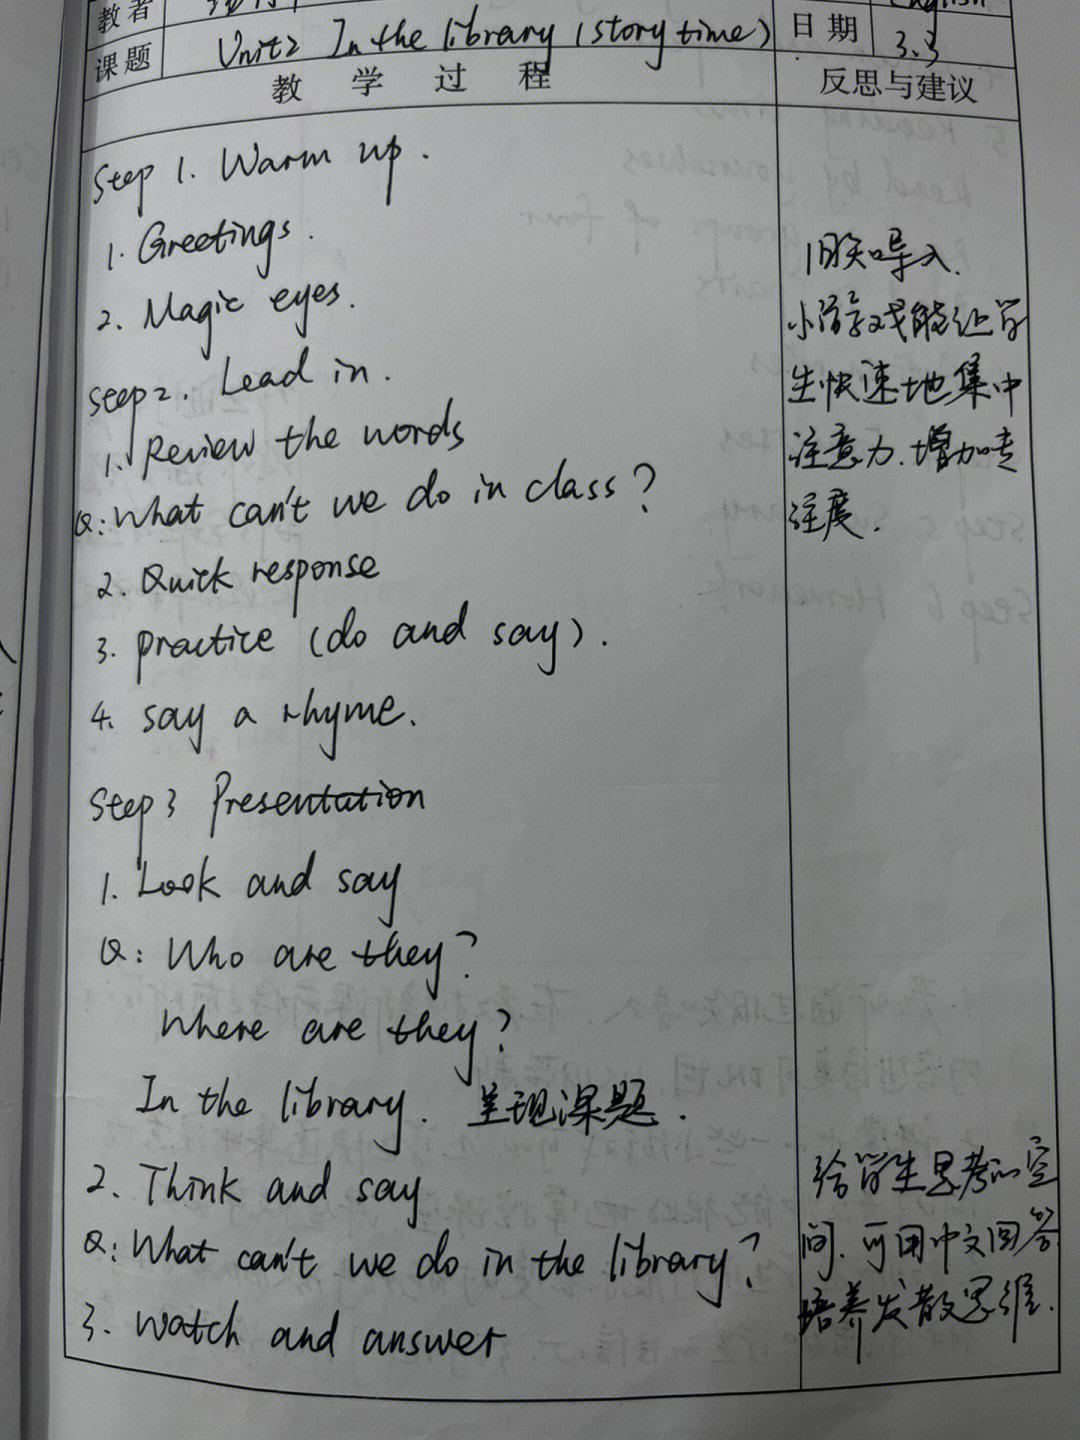 教者 English
课题 Unit2 In the library (story time) 日期 3.3
教 学 过 程 反思与建议
Step 1. Warm up.
1. Greetings.
2. Magic eyes.
Step2. Lead in.
1. Review the words
Q: What can't we do in class?
2. Quick response
3. practice (do and say).
4. say a rhyme.
Step3 Presentation
1. Look and say
Q: Who are they?
Where are they?
In the library. 呈现课题.
2. Think and say
Q: What can't we do in the library?
3. Watch and answer
旧知导入.
小游戏能让学
生快速地集中
注意力.增加专
注度.
给学生思考的空
间.可用中文回答
培养发散思维.